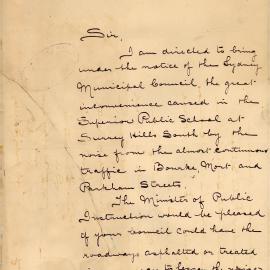 Sir,
I am directed to bring
under the notice of the Sydney
Municipal Council, the great
inconvenience caused in the
Superior Public School at
Surrey Hills South by the
noise from the almost continuous
traffic in Bourke, Mort, and
Parkham Streets.
The Minister of Public
Instruction would be pleased
if your Council could have the
roadways asphalted or treated